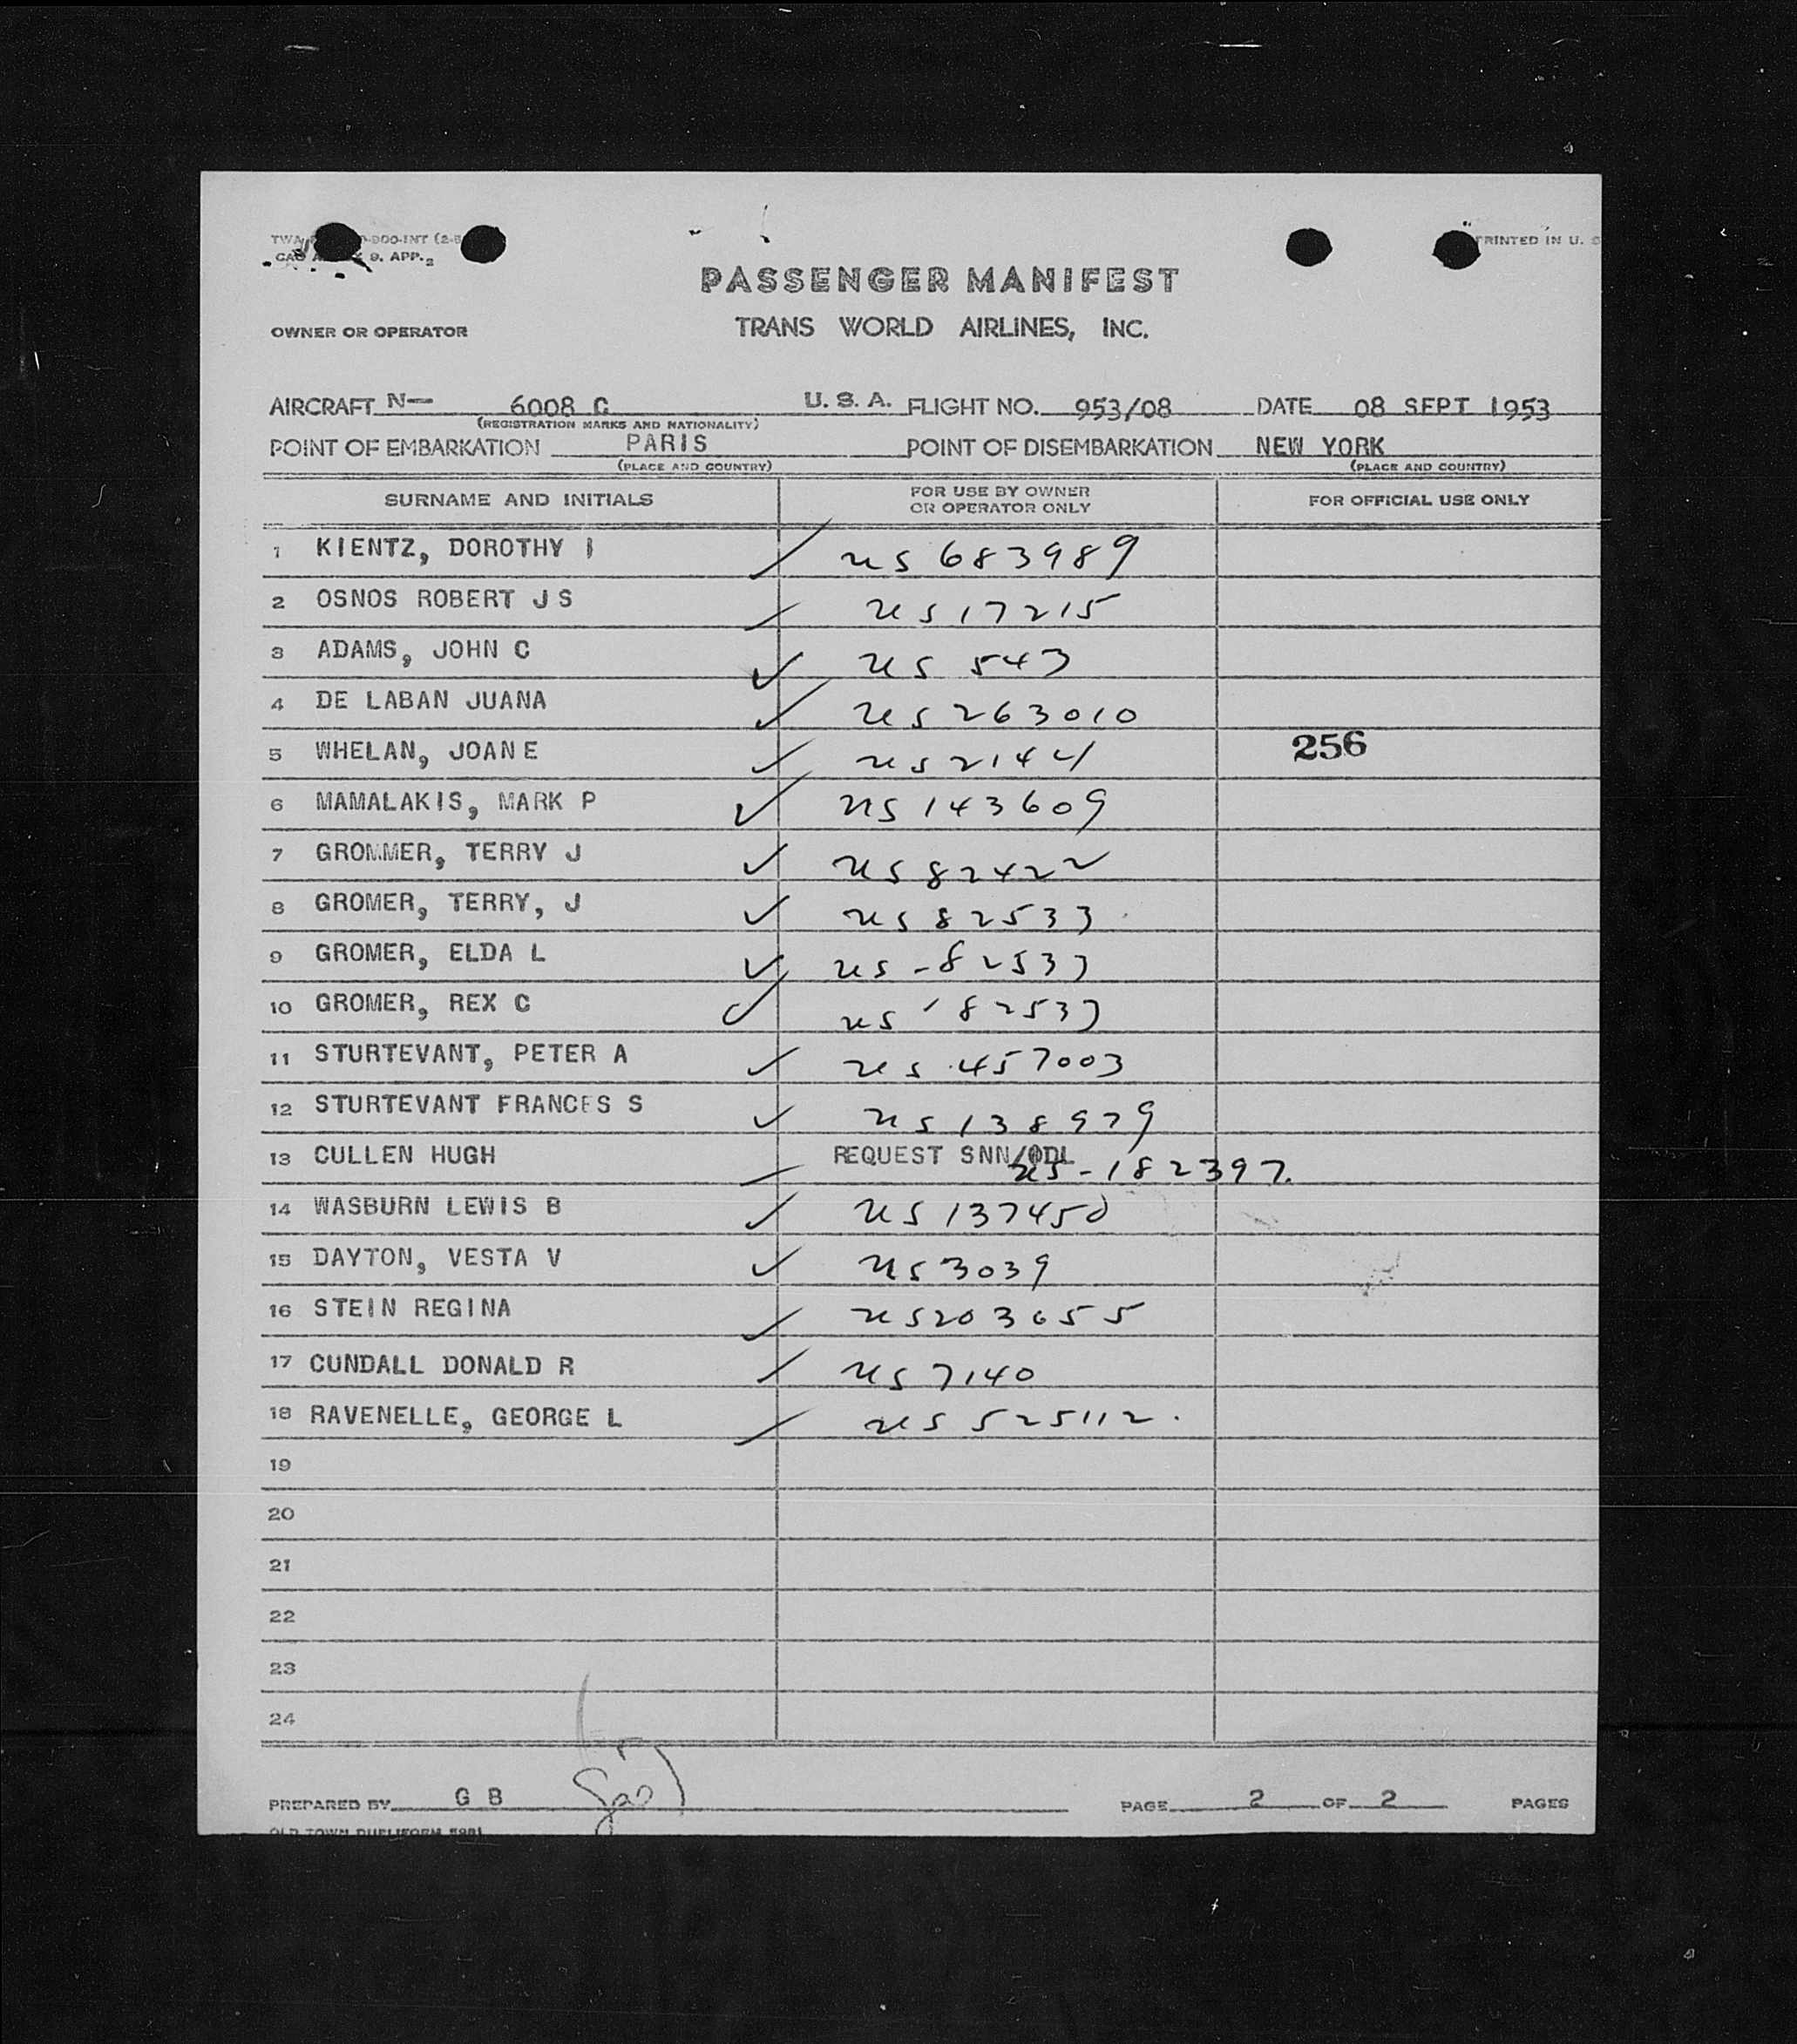 PRINTED IN U. S
PASSENGER MANIFEST
OWNER OR OPERATOR TRANS WORLD AIRLINES, INC.
AIRCRAFT N— 6008 C U. S. A. FLIGHT NO. 953/08 DATE 08 SEPT 1953
(REGISTRATION MARKS AND NATIONALITY)
POINT OF EMBARKATION PARIS POINT OF DISEMBARKATION NEW YORK
(PLACE AND COUNTRY) (PLACE AND COUNTRY)
SURNAME AND INITIALS FOR USE BY OWNER OR OPERATOR ONLY FOR OFFICIAL USE ONLY
1 KIENTZ, DOROTHY I US 683989
2 OSNOS ROBERT J S US 17215
3 ADAMS, JOHN C US 543
4 DE LABAN JUANA US 263010
5 WHELAN, JOAN E US 2144 256
6 MAMALAKIS, MARK P US 143609
7 GROMMER, TERRY J US 82422
8 GROMER, TERRY, J US 82533
9 GROMER, ELDA L US - 82533
10 GROMER, REX C US 182533
11 STURTEVANT, PETER A US 457003
12 STURTEVANT FRANCES S US 138979
13 CULLEN HUGH REQUEST SNN/ODL
US - 182397.
14 WASBURN LEWIS B US 137450
15 DAYTON, VESTA V US 3039
16 STEIN REGINA US 203655
17 CUNDALL DONALD R US 7140
18 RAVENELLE, GEORGE L US 525112.
19
20
21
22
23
24
PREPARED BY G B PAGE 2 OF 2 PAGES